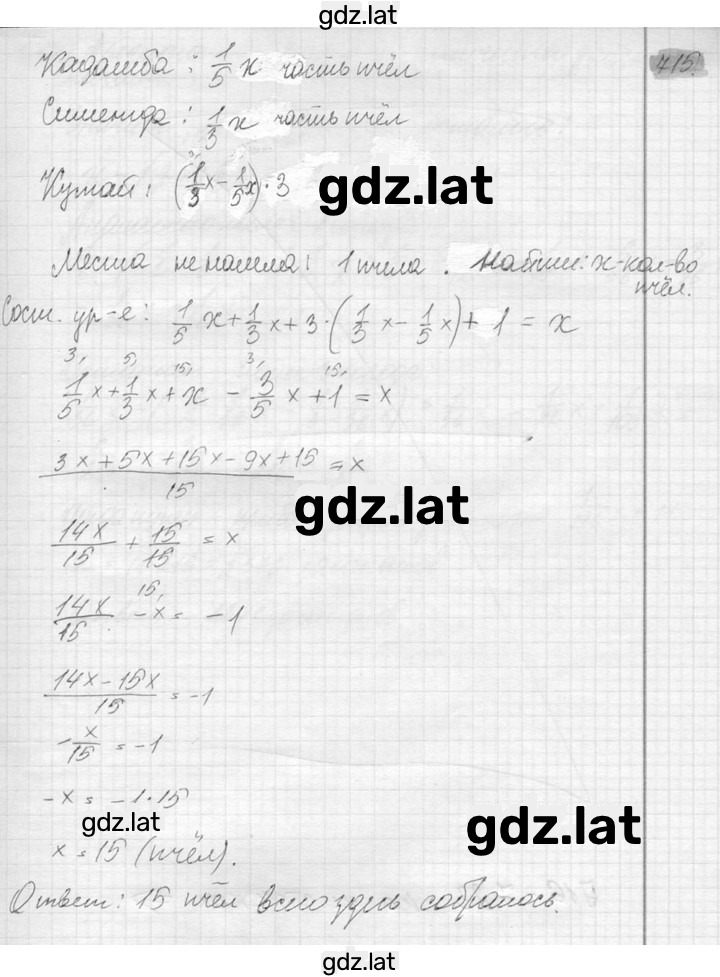 gdz.lat
415.
Кадамба: 1/5 x часть пчёл
Сименгда: 1/3 x часть пчёл
Кутай: (1/3 x - 1/5 x) · 3
gdz.lat
Места не нашла: 1 пчела. x - кол-во пчёл.
Сост. ур-е: 1/5 x + 1/3 x + 3 · (1/3 x - 1/5 x) + 1 = x
3, 5, 15, 3, 15,
1/5 x + 1/3 x + x - 3/5 x + 1 = x
(3x + 5x + 15x - 9x + 15)/15 = x
gdz.lat
14x/15 + 15/15 = x
15,
14x/15 - x = -1
(14x - 15x)/15 = -1
- x/15 = -1
-x = -1 · 15
gdz.lat
gdz.lat
x = 15 (пчёл).
Ответ: 15 пчёл всего здесь собралось.
gdz.lat